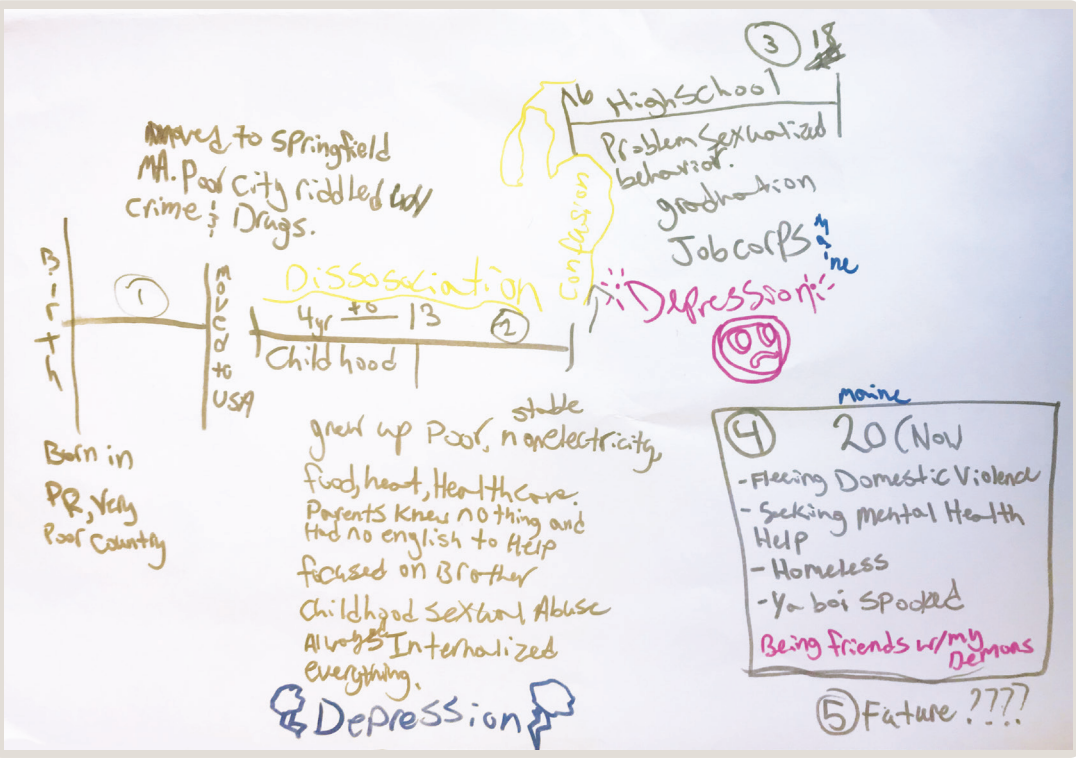 Birth
1
Born in
PR, very
Poor Country
moved to Springfield
MA. Poor City riddled w/
crime & Drugs.
moved to USA
Dissosciation
4yr to 13
2
Childhood
grew up Poor, no stable electricity,
food, heat, Healthcare.
Parents knew nothing and
Had no english to Help
focused on Brother
Childhood sexual Abuse
Always Internalized
everything.
Depression
Confusion
3
18
16 High School
Problem Sexualized
behavior.
graduation
Job corps Maine
Depression
maine
4
20 (Now
- Fleeing Domestic Violence
- Seeking mental Health
Help
- Homeless
- Ya boi spooked
Being friends w/ my
Demons
5 Future ????